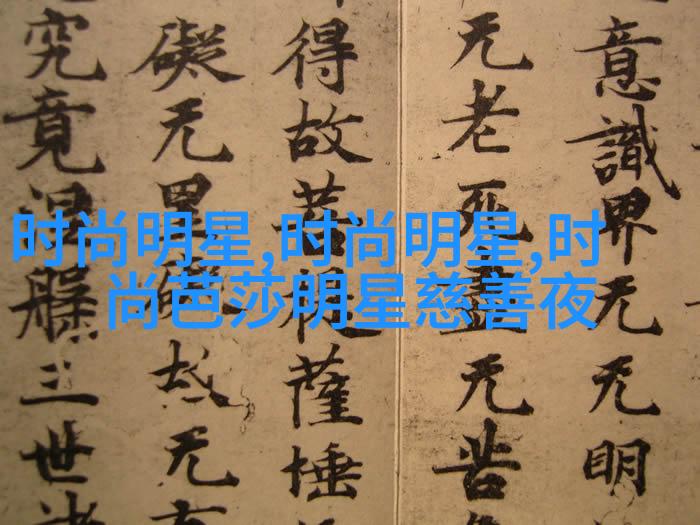 时尚明星,时尚明星,时
尚芭莎明星慈善夜
意識界无无明
无老死盡无苦
得故菩提薩埵
礙无罣礙故无有
究竟涅槃三世諸